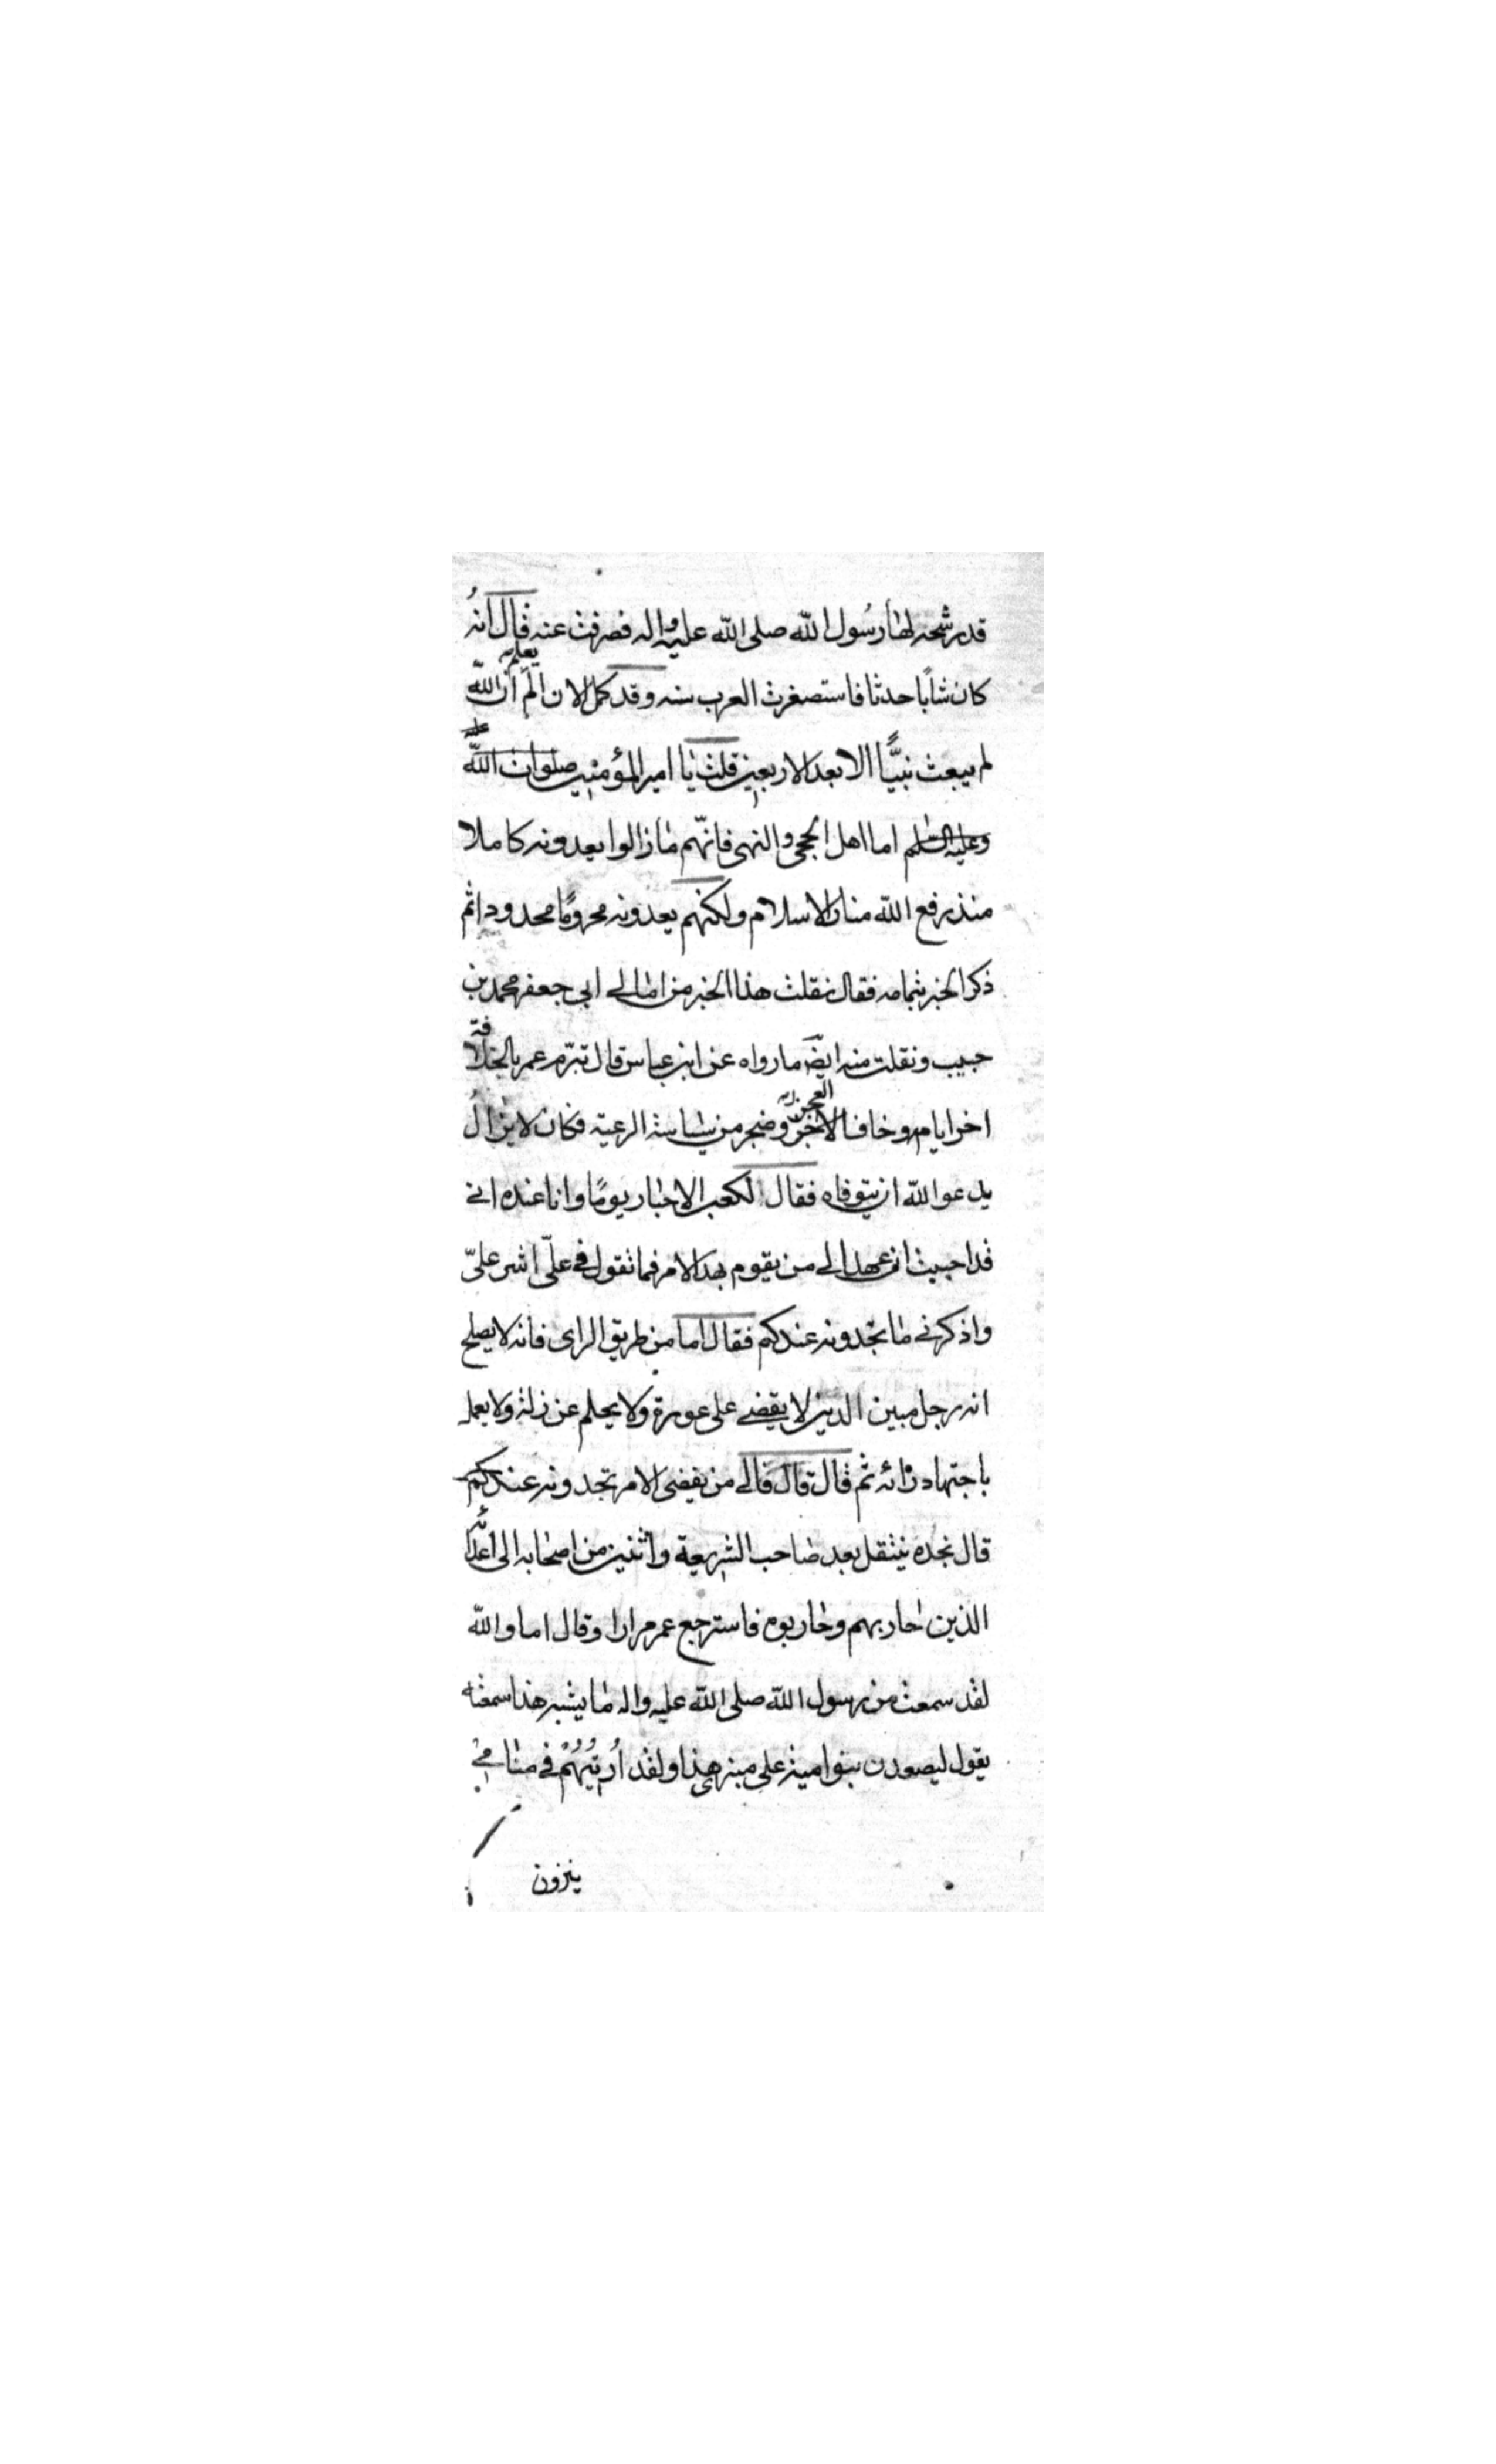 قد رشحه لها رسول الله صلى الله عليه واله فصرفت عنه قال انه
كان شابا حدثا فاستصغرت العرب سنه وقد كمل الان الم يعلم ان الله
لم يبعث نبيًّا الا بعد الاربعين قلت يا امير المؤمنين صلوات الله عليه
وعليه السلم اما اهل الحجى والنهى فانّهم ما زالوا يعدونه كاملا
منذ رفع الله منار الاسلام ولكنهم يعدونه محرومًا محدودا ثم
ذكر الخبر بتمامه فقال نقلت هذا الخبر من امالي ابي جعفر محمد بن
حبيب ونقلت منه ايضً ما رواه عن ابن عباس قال تبرّم عمر بالخلافة
اخر ايامه وخاف العجز وضجر من سياسة الرعية فكان لا يزال
يدعو الله ان يتوفاه فقال لكعب الاحبار يومًا وانا عنده اني
قد احببت ان عهد الي من يقوم بهذا الامر فما تقول في عليّ اشر عليّ
واذكرني ما تجدونه عندكم فقال اما من طريق الراى فانه لا يصلح
انه رجل مبين الدين لا يقضي على عورة ولا يحلم عن زلة ولا يعمل
باجتهاد رائه ثم قال قال قالي من يفضى الامر تجدونه عندكم
قال نجده ينتقل بعد صاحب الشريعة واثنين من اصحابه الى اعدائه
الذين حاربهم وحاربوه فاسترجع عمر مرارا وقال اما والله
لقد سمعت من رسول الله صلى الله عليه واله ما يشبه هذا سمعته
يقول ليصعدن بنو امية على منبري هذا ولقد اُريتُهُمْ في منامي
ينزون